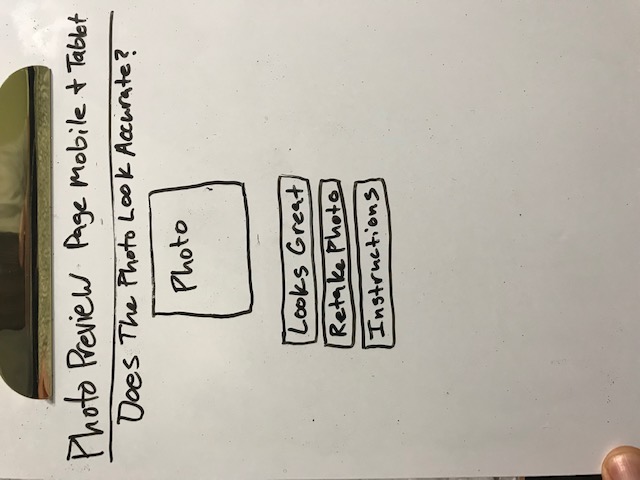 Photo Preview Page Mobile + Tablet
Does The Photo Look Accurate?
Photo
Looks Great
Retake Photo
Instructions